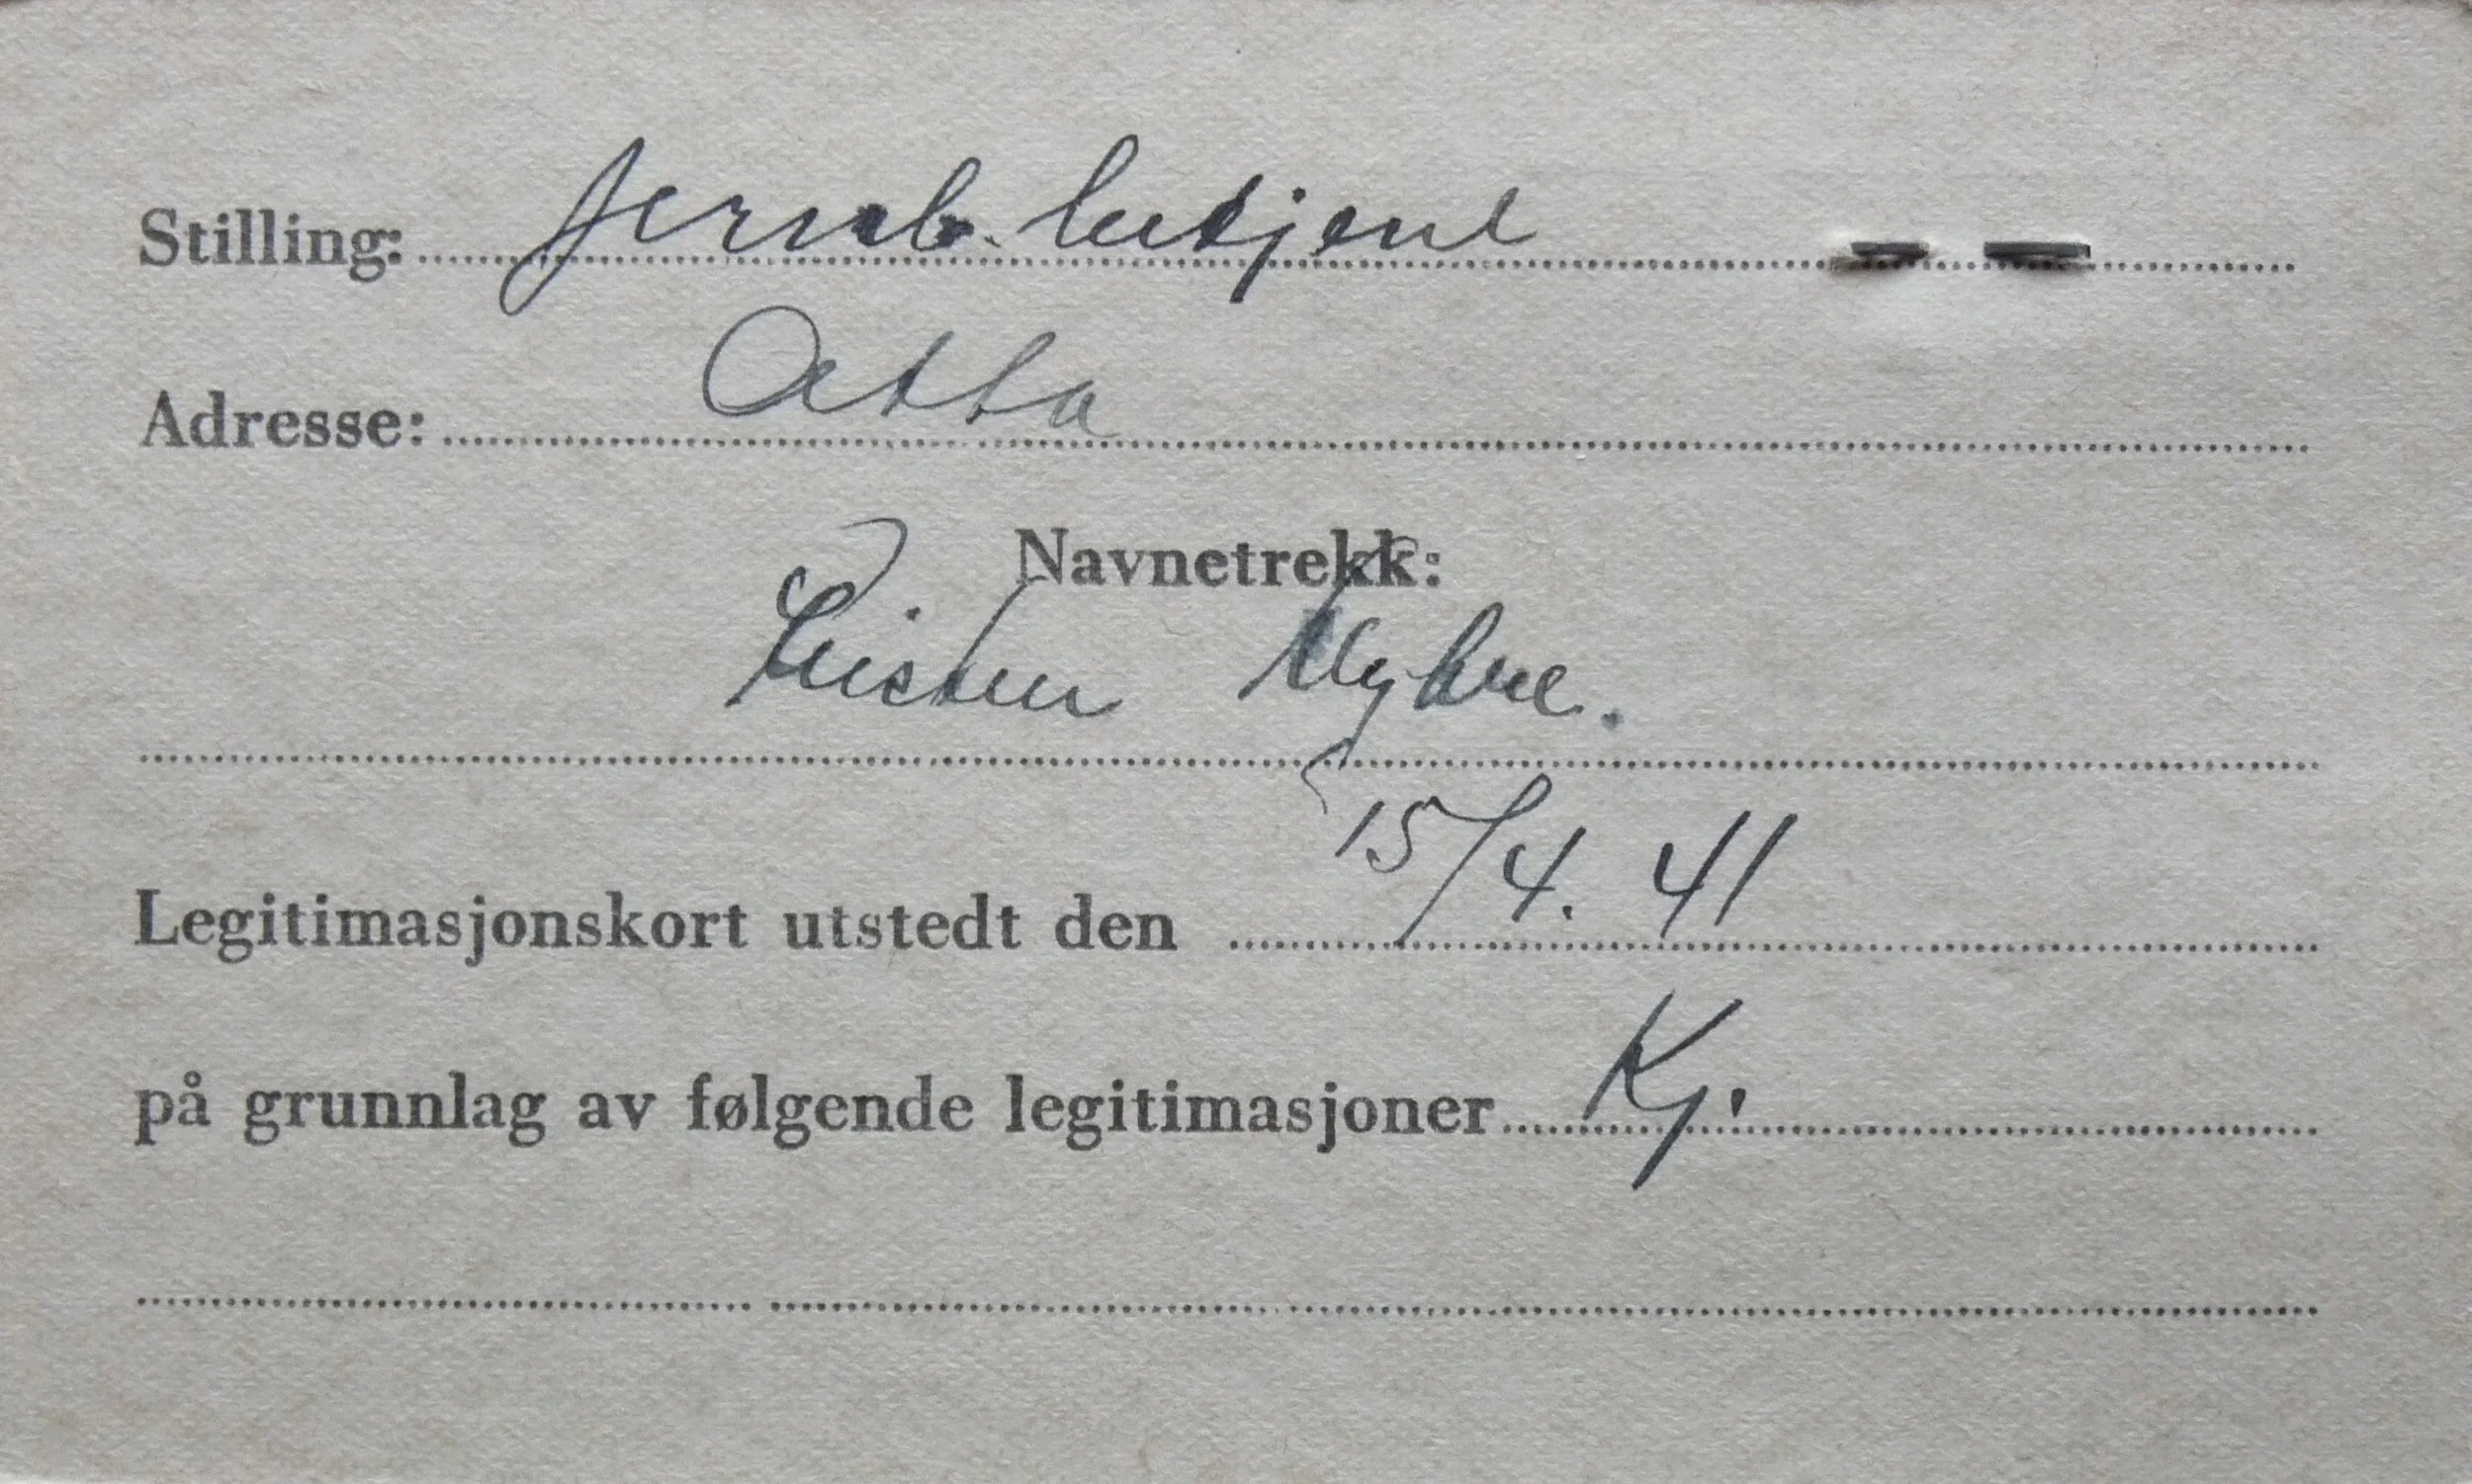 Stilling: Jernb. betjent
Adresse: Otta
Navnetrekk:
Kristen Myhre.
Legitimasjonskort utstedt den 15/4. 41
på grunnlag av følgende legitimasjoner Kj.